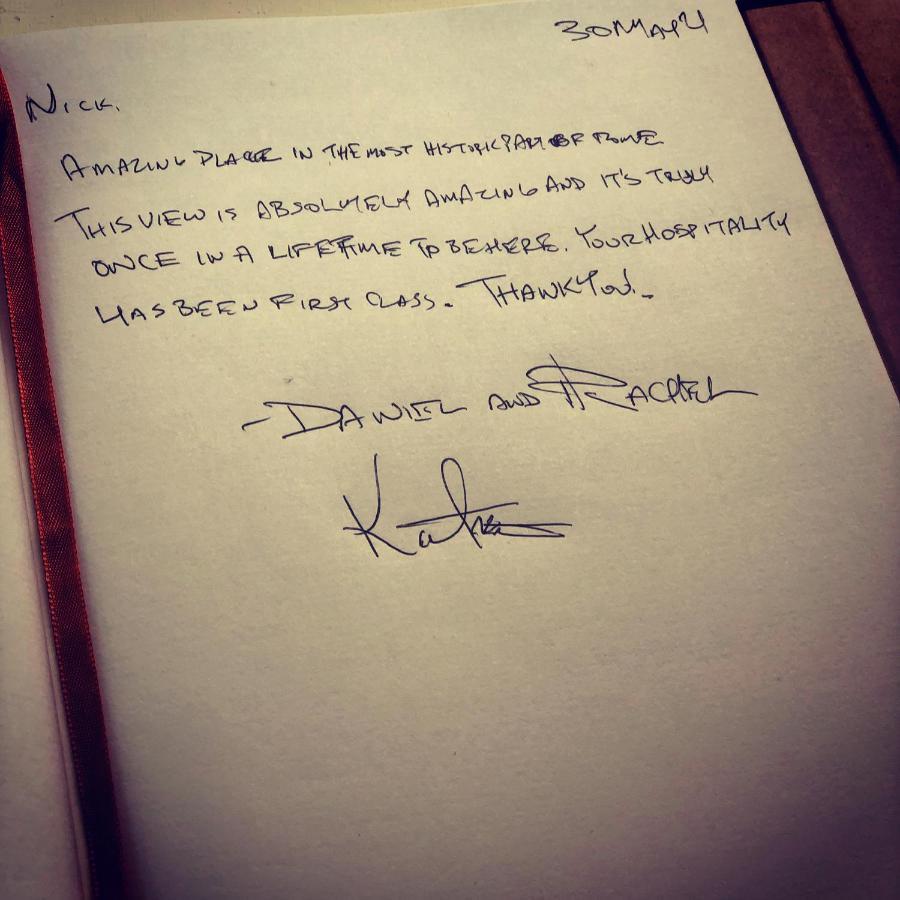 30MAY21
NICK.
AMAZING PLACE IN THE MOST HISTORIC PART OF ROME
THIS VIEW IS ABSOLUTELY AMAZING AND IT'S TRULY
ONCE IN A LIFETIME TO BE HERE. YOUR HOSPITALITY
HAS BEEN FIRST CLASS. THANK YOU!
-DANIEL AND RACHEL